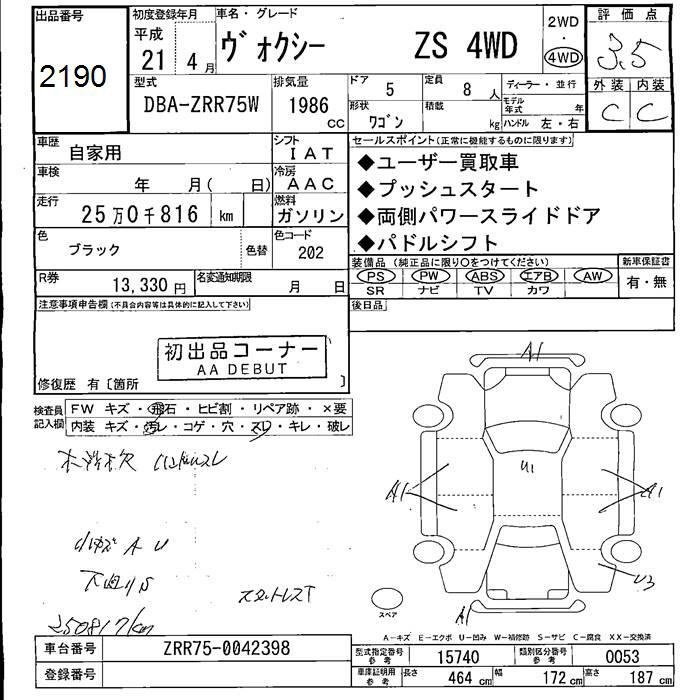 出品番号
2190
初度登録年月
平成
21年4月
車名・グレード
ヴォクシー ZS 4WD
2WD
・
4WD
評価点
3.5
外装 内装
C C
型式
DBA-ZRR75W
排気量
1986
CC
ドア
5
定員
8人
ディーラー・並行
形状
ワゴン
積載
kg
モデル年式
年
ハンドル 左・右
車歴
自家用
シフト
IAT
車検
年 月( 日)
冷房
AAC
走行
25万0千816 km
燃料
ガソリン
色
ブラック
色替
色コード
202
R券
13,330円
名変通知期限
月 日
セールスポイント(正常に機能するものに限ります)
◆ユーザー買取車
◆プッシュスタート
◆両側パワースライドドア
◆パドルシフト
装備品(純正品に限り○をつけてください)
PS PW ABS エアB AW
SR ナビ TV カワ
新車保証書
有・無
後日品
注意事項申告欄(不具合内容等は具体的に記入して下さい)
初出品コーナー
AA DEBUT
修復歴 有〔箇所 〕
検査員記入欄
FW キズ・飛石・ヒビ割・リペア跡・×要
内装 キズ・汚レ・コゲ・穴・スレ・キレ・破レ
小キズ A U
下廻りS
250817km
A1
U1
A1
A1
U3
A1
スペア
A-キズ E-エクボ U-凹み W-補修跡 S-サビ C-腐食 XX-交換済
車台番号
ZRR75-0042398
登録番号
型式指定番号
参考
15740
類別区分番号
参考
0053
車庫証明用
参考
長さ
464cm
幅
172cm
高さ
187cm